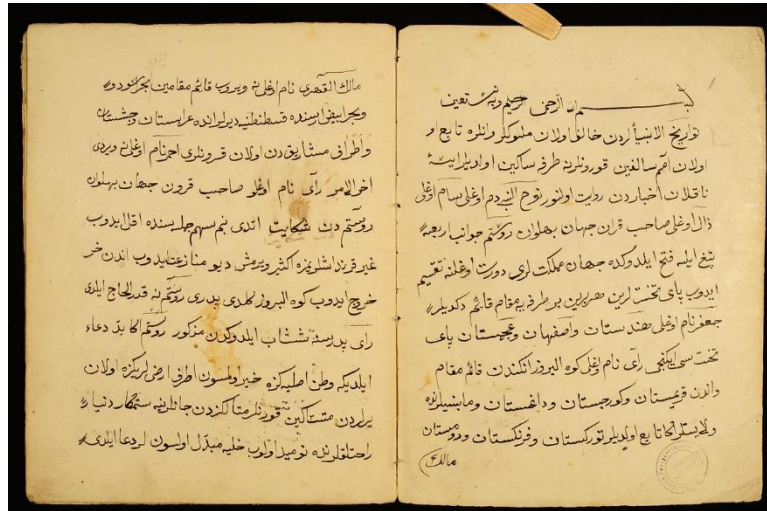 بسم الله الرحمن الرحيم وبه نستعين
تواريخ الانبيا لردن خالق اولان ملوكلر وانلره تابع او
اولان امم سالفين قورونلرنه طرفه ساكين اولديلر ايسه
ناقلان اخباردن روايت اولنور نوح النبيدم اوغلى سام اوغلى
ذال اوغلى صاحب قران جهان بهلوان روستم جوانب اربعه
تيغ ايله فتح ايلدوكده جهان مملكت لرى دورت اوغلنه تقسيم
ايدوب پاى تخت لرين هر بريين بر طرفه مقام قائم دكديلر
جعفر نام اوغلى هندستان واصفهان وعجمستان پاى
تخت سى ايكنجى رآى نام اوغلى كوه البروز اتكندن قائم مقام
واندن قريمستان وكورجستان وداغستان ومابينلرنده
ولايتلر اكا تابع اولديلر توركستان وفرنكستان ورومستان
مالك
مالك القهرى نام اوغلى نه ويروب قائم مقامين بحر اسودو
وبحر ابيض ارسنده قسطنطنيه ديرلر انده عرابستان وحبشستان
واطرافى مشاريق دن اولان قرونلرى احمر نام اوغلى نه ويردى
اخر الامر رآى نام اوغلو صاحب قرون جهان بهلوان
روستم دن شكايت اتدى بنم سهم جمله سنده اقل ايدوب
غير قرنداشلريمزه كثير ويرمش ديو منازعت ايدوب اندن خر
خروج ايدوب كوه البروز كلدى پدرى روستم نه قدر الحاج ايلدى
رآى پدرسنه شتاب ايلدوكدن مذكور روستم اكا بد دعاء
ايلديكه وطن اصليكزه خير اولسون اطرافى ارضى لريكزه اولان
يرلردن متساكين قورنلر متالكزدن جانلرنه ستمكار دنيا
راحتلقلرنده نوميد اولوب خليه مبدل اولسون لر دعا ايلدى